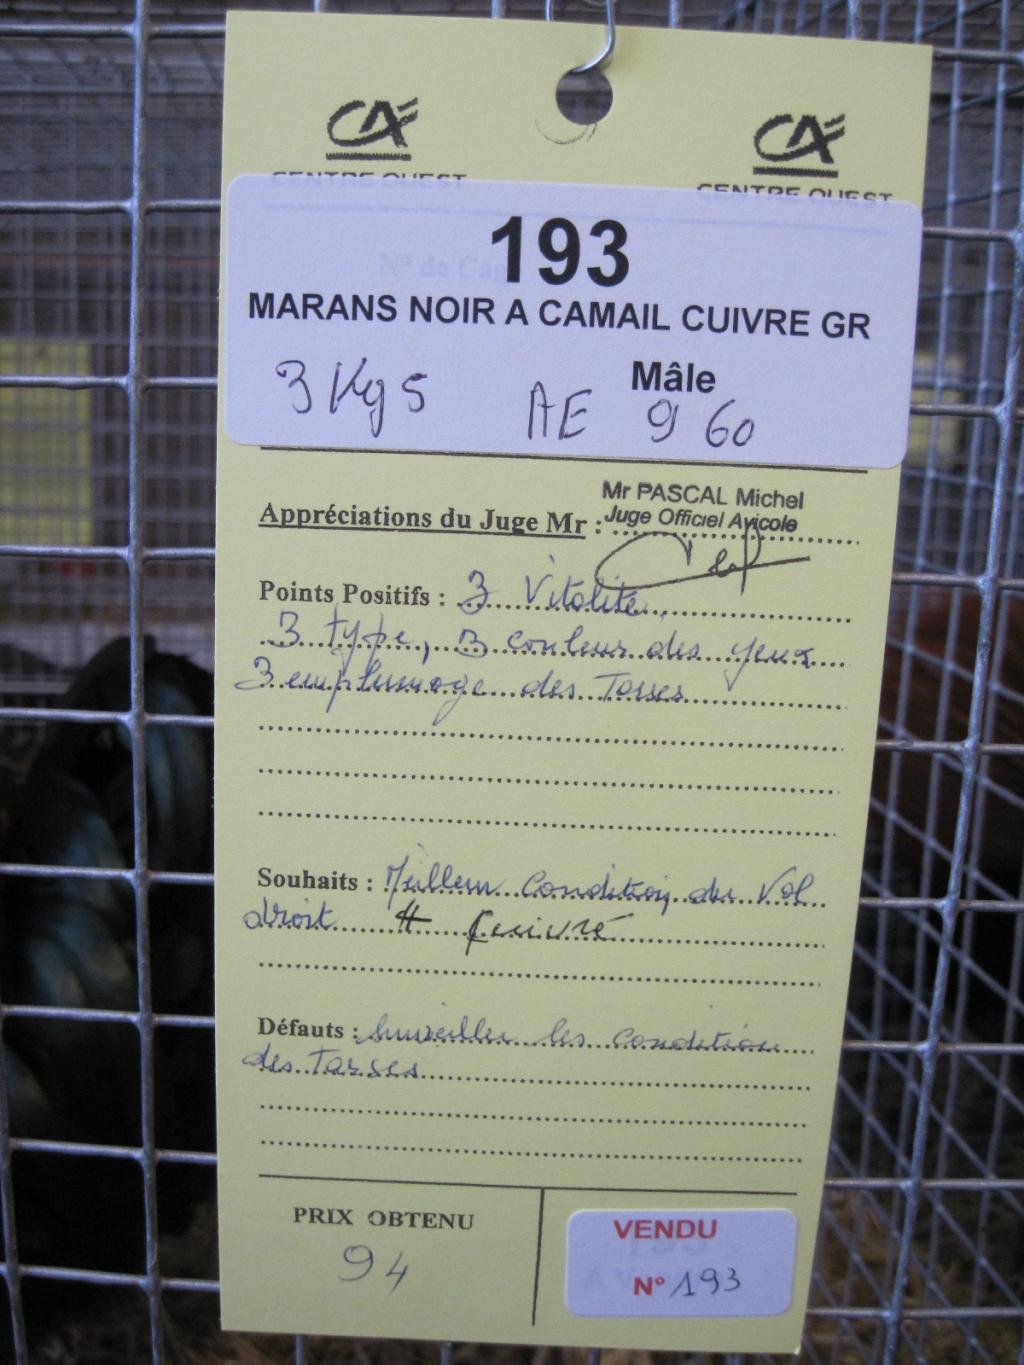 CA CA
CENTRE OUEST CENTRE OUEST
N° de Cage
193
MARANS NOIR A CAMAIL CUIVRE GR
Mâle
3 Kg 5 AE 960
Mr PASCAL Michel
Appréciations du Juge Mr : Juge Officiel Avicole
Points Positifs : 3 Vitalité
3 type, 3 couleur des yeux
3 emplumage des Tarses
Souhaits : Meilleur Condition du Vol
droit # cuivré
Défauts : Surveiller les condition
des Tarses
PRIX OBTENU
94
VENDU
N° 193